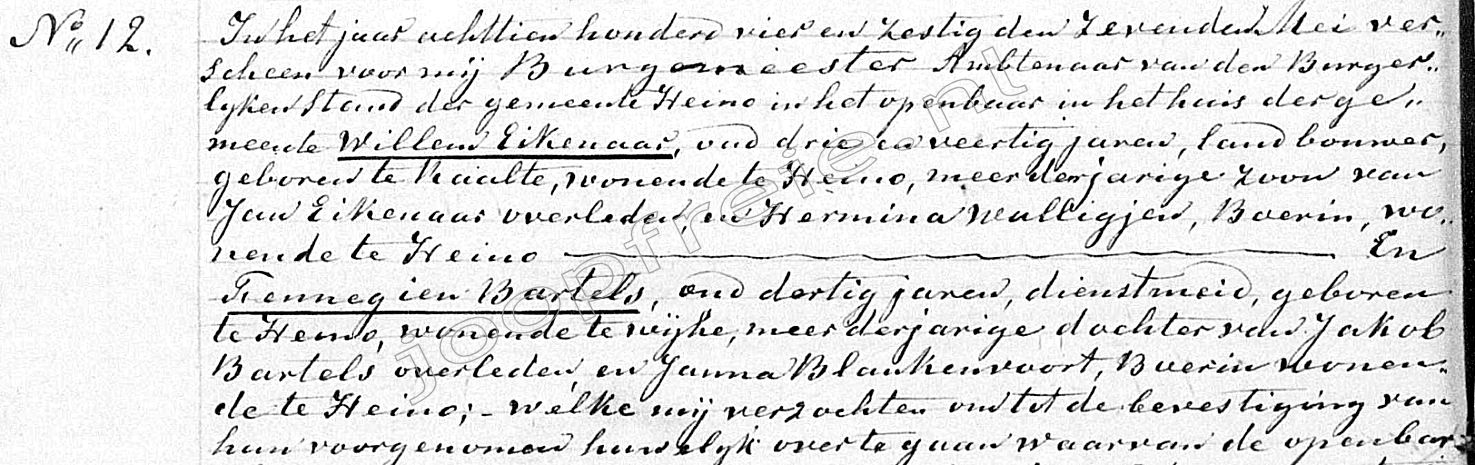 No. 12.
In het jaar achttien honderd vier en zestig den zevenden Mei ver„
scheen voor mij Burgemeester Ambtenaar van den Burger„
lyken Stand der gemeente Heino in het openbaar in het huis der ge„
meente Willem Eikenaar, oud drie en veertig jaren, landbouwer,
geboren te Raalte, wonende te Heino, meerderjarige zoon van
Jan Eikenaar overleden, en Hermina Wulligjen, Boerin, wo„
nende te Heino En
Fennegien Bartels, oud dertig jaren, dienstmeid, geboren
te Heino, wonende te Wijhe, meerderjarige dochter van Jakob
Bartels overleden, en Janna Blankenvoort, Boerin wonen„
de te Heino; - welke mij verzochten om tot de bevestiging van
hun voorgenomen huwelyk over te gaan waarvan de openbar
joopfreie.nl